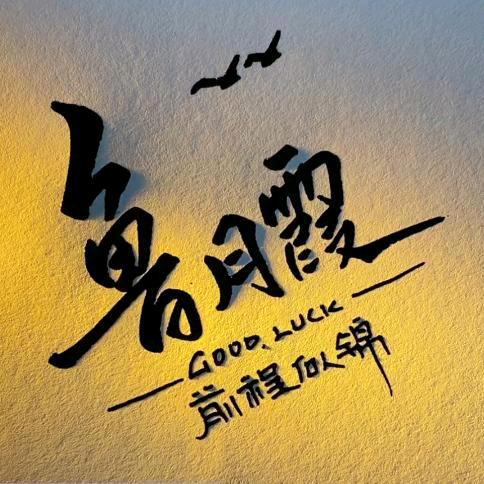 鲁月霞
GOOD.LUCK
前程似锦